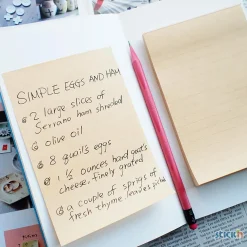 SIMPLE EGGS AND HAM
2 large slices of
Serrano ham shreded
olive oil
8 quail's eggs
1 ½ ounces hard goat's
cheese, finely grated
a couple of sprigs of
fresh thyme, leaves picked